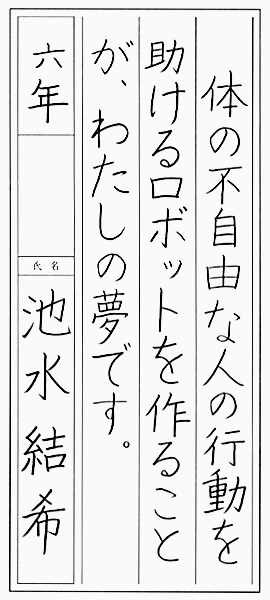 体の不自由な人の行動を
助けるロボットを作ること
が、わたしの夢です。
六年
氏名
池水結希